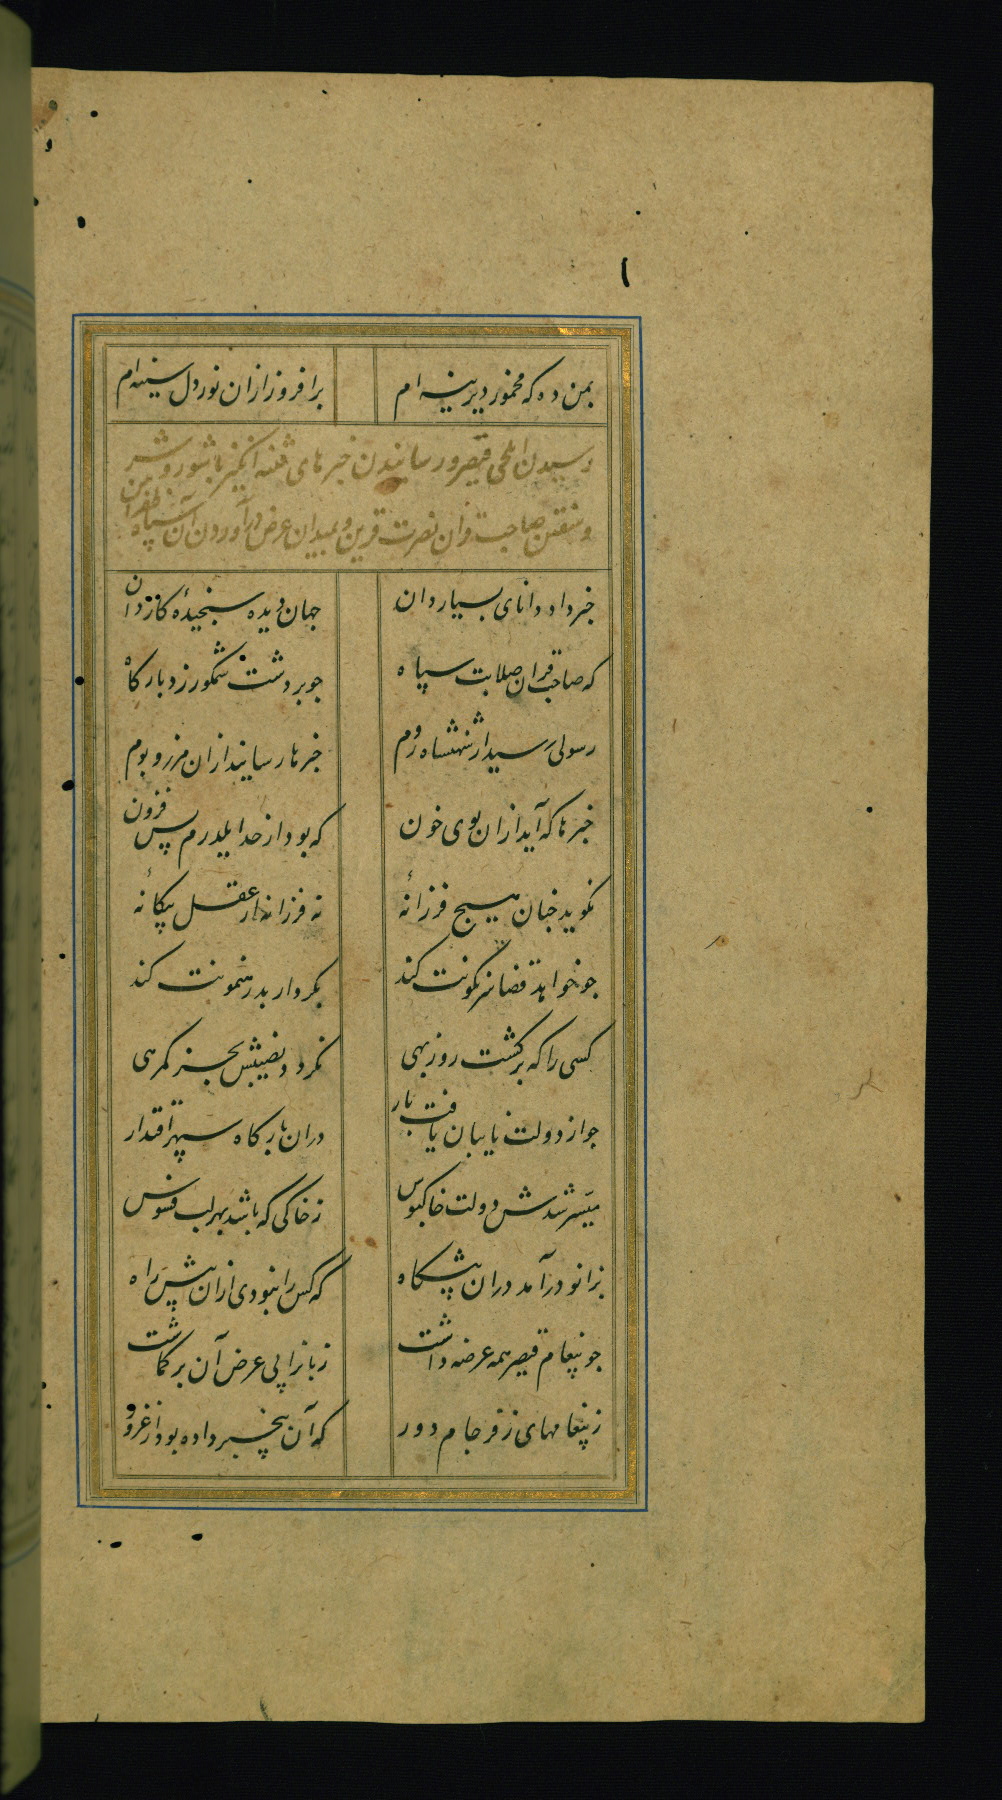 بمن ده که مخمور دیرینه ام برافروز ازان نور دل سینه ام
رسیدن ایلچی قیصر و رسانیدن خبرهای فتنه انگیز با شور و شر
و شنفتن صاحب قران نصرت قرین و بمیدان عرض درآوردن آن سپاه ظفر
خبر داد دانای بسیار دان جهان دیده سنجیدهٔ کاردان
که صاحب قران صلابت سپاه جو بر دشت شمکور زد بارکاه
رسولی رسید از شهنشاه روم خبرها رسانید ازان مرز و بوم
خبرها که آید ازان بوی خون که بود از حد ایلدرم پس فزون
نکوید جنان هیسچ فرزانهٔ نه فرزانه از عقل بیکانهٔ
جو خواهد قضا سرنکونت کند بکردار بد رهنمونت کند
کسی را که برکشت روز بهی نکردد نصیبش بجز کمرهی
جو از دولت یابان یافت بار دران بارکاه سپهر اقتدار
میسر شدش دولت خاکبوس ز خاکی که باشد بهر لب فسوس
بزانو درآمد دران پیشکاه که کس را نبودی ازان پیش راه
جو پیغام قیصر همه عرضه داشت زبانرا پی عرض آن برکماشت
ز پیغامهای ز فرجام دور که آن بیخبر داده بود از غرور